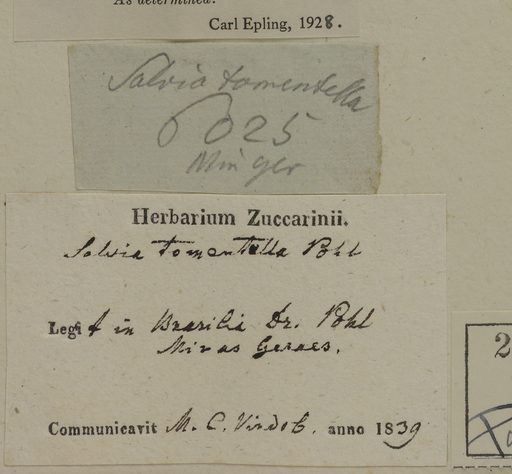 As determined.
Carl Epling, 1928.
Salvia tomentella
6025
Min ger
Herbarium Zuccarinii.
Salvia tomentella Pohl
Legit in Brasilia Dr. Pohl
Minas Geraes.
Communicavit M. C. Vindob. anno 1839
2